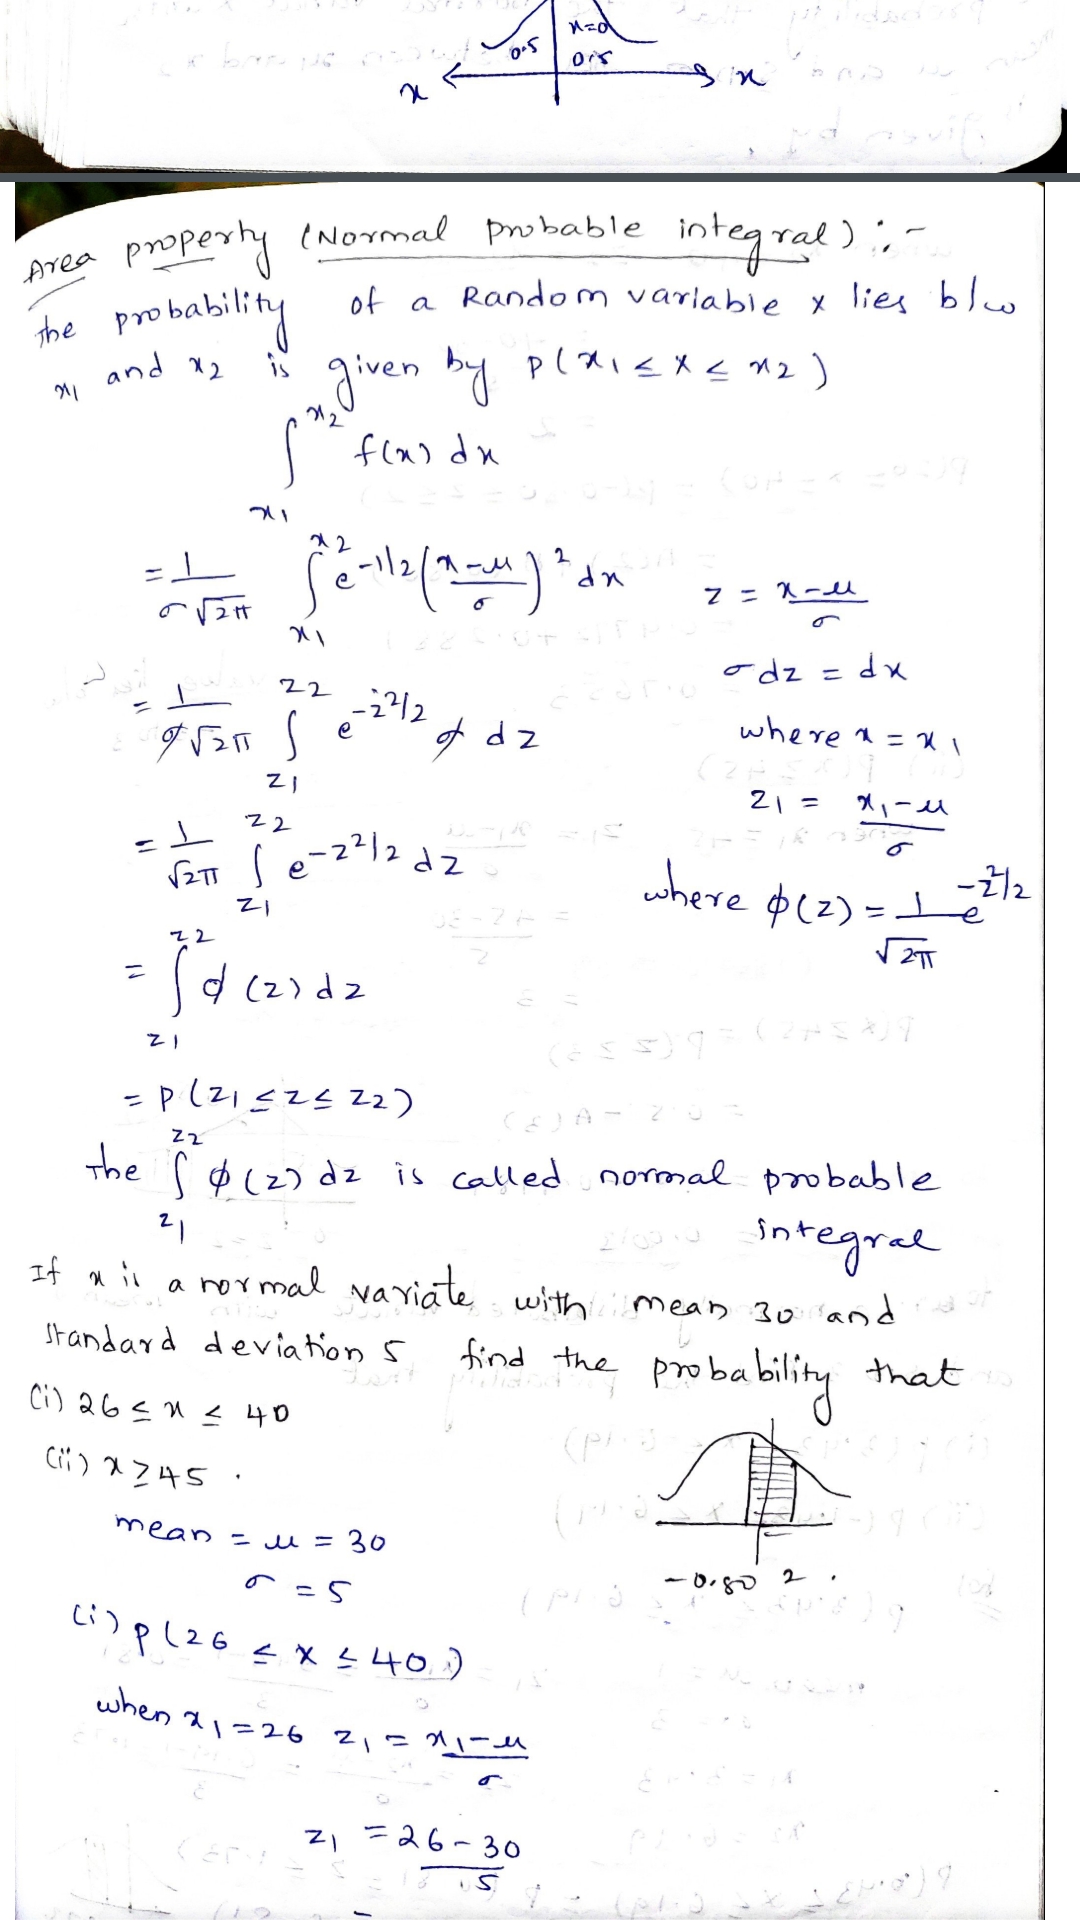 x=0
0.5 0.5
x x
Area property (Normal probable integral) :-
The probability of a Random variable x lies b/w
x1 and x2 is given by P(x1 ≤ X ≤ x2)
∫_{x1}^{x2} f(x) dx
= 1/(σ√2π) ∫_{x1}^{x2} e^{-1/2((x-μ)/σ)^2} dx z = (x-μ)/σ
σdz = dx
= 1/(σ√2π) ∫_{z1}^{z2} e^{-z²/2} σ dz where x = x1
z1 = (x1-μ)/σ
= 1/√2π ∫_{z1}^{z2} e^{-z²/2} dz
where φ(z) = 1/√2π e^{-z²/2}
= ∫_{z1}^{z2} φ(z) dz
= P(z1 ≤ z ≤ z2)
The ∫_{z1}^{z2} φ(z) dz is called normal probable
integral
If x is a normal variate with mean 30 and
standard deviation 5 find the probability that
(i) 26 ≤ x ≤ 40
(ii) x ≥ 45 .
mean = μ = 30
σ = 5
-0.80 2 .
(i) P(26 ≤ x ≤ 40)
when x1 = 26 z1 = (x1-μ)/σ
z1 = (26-30)/5